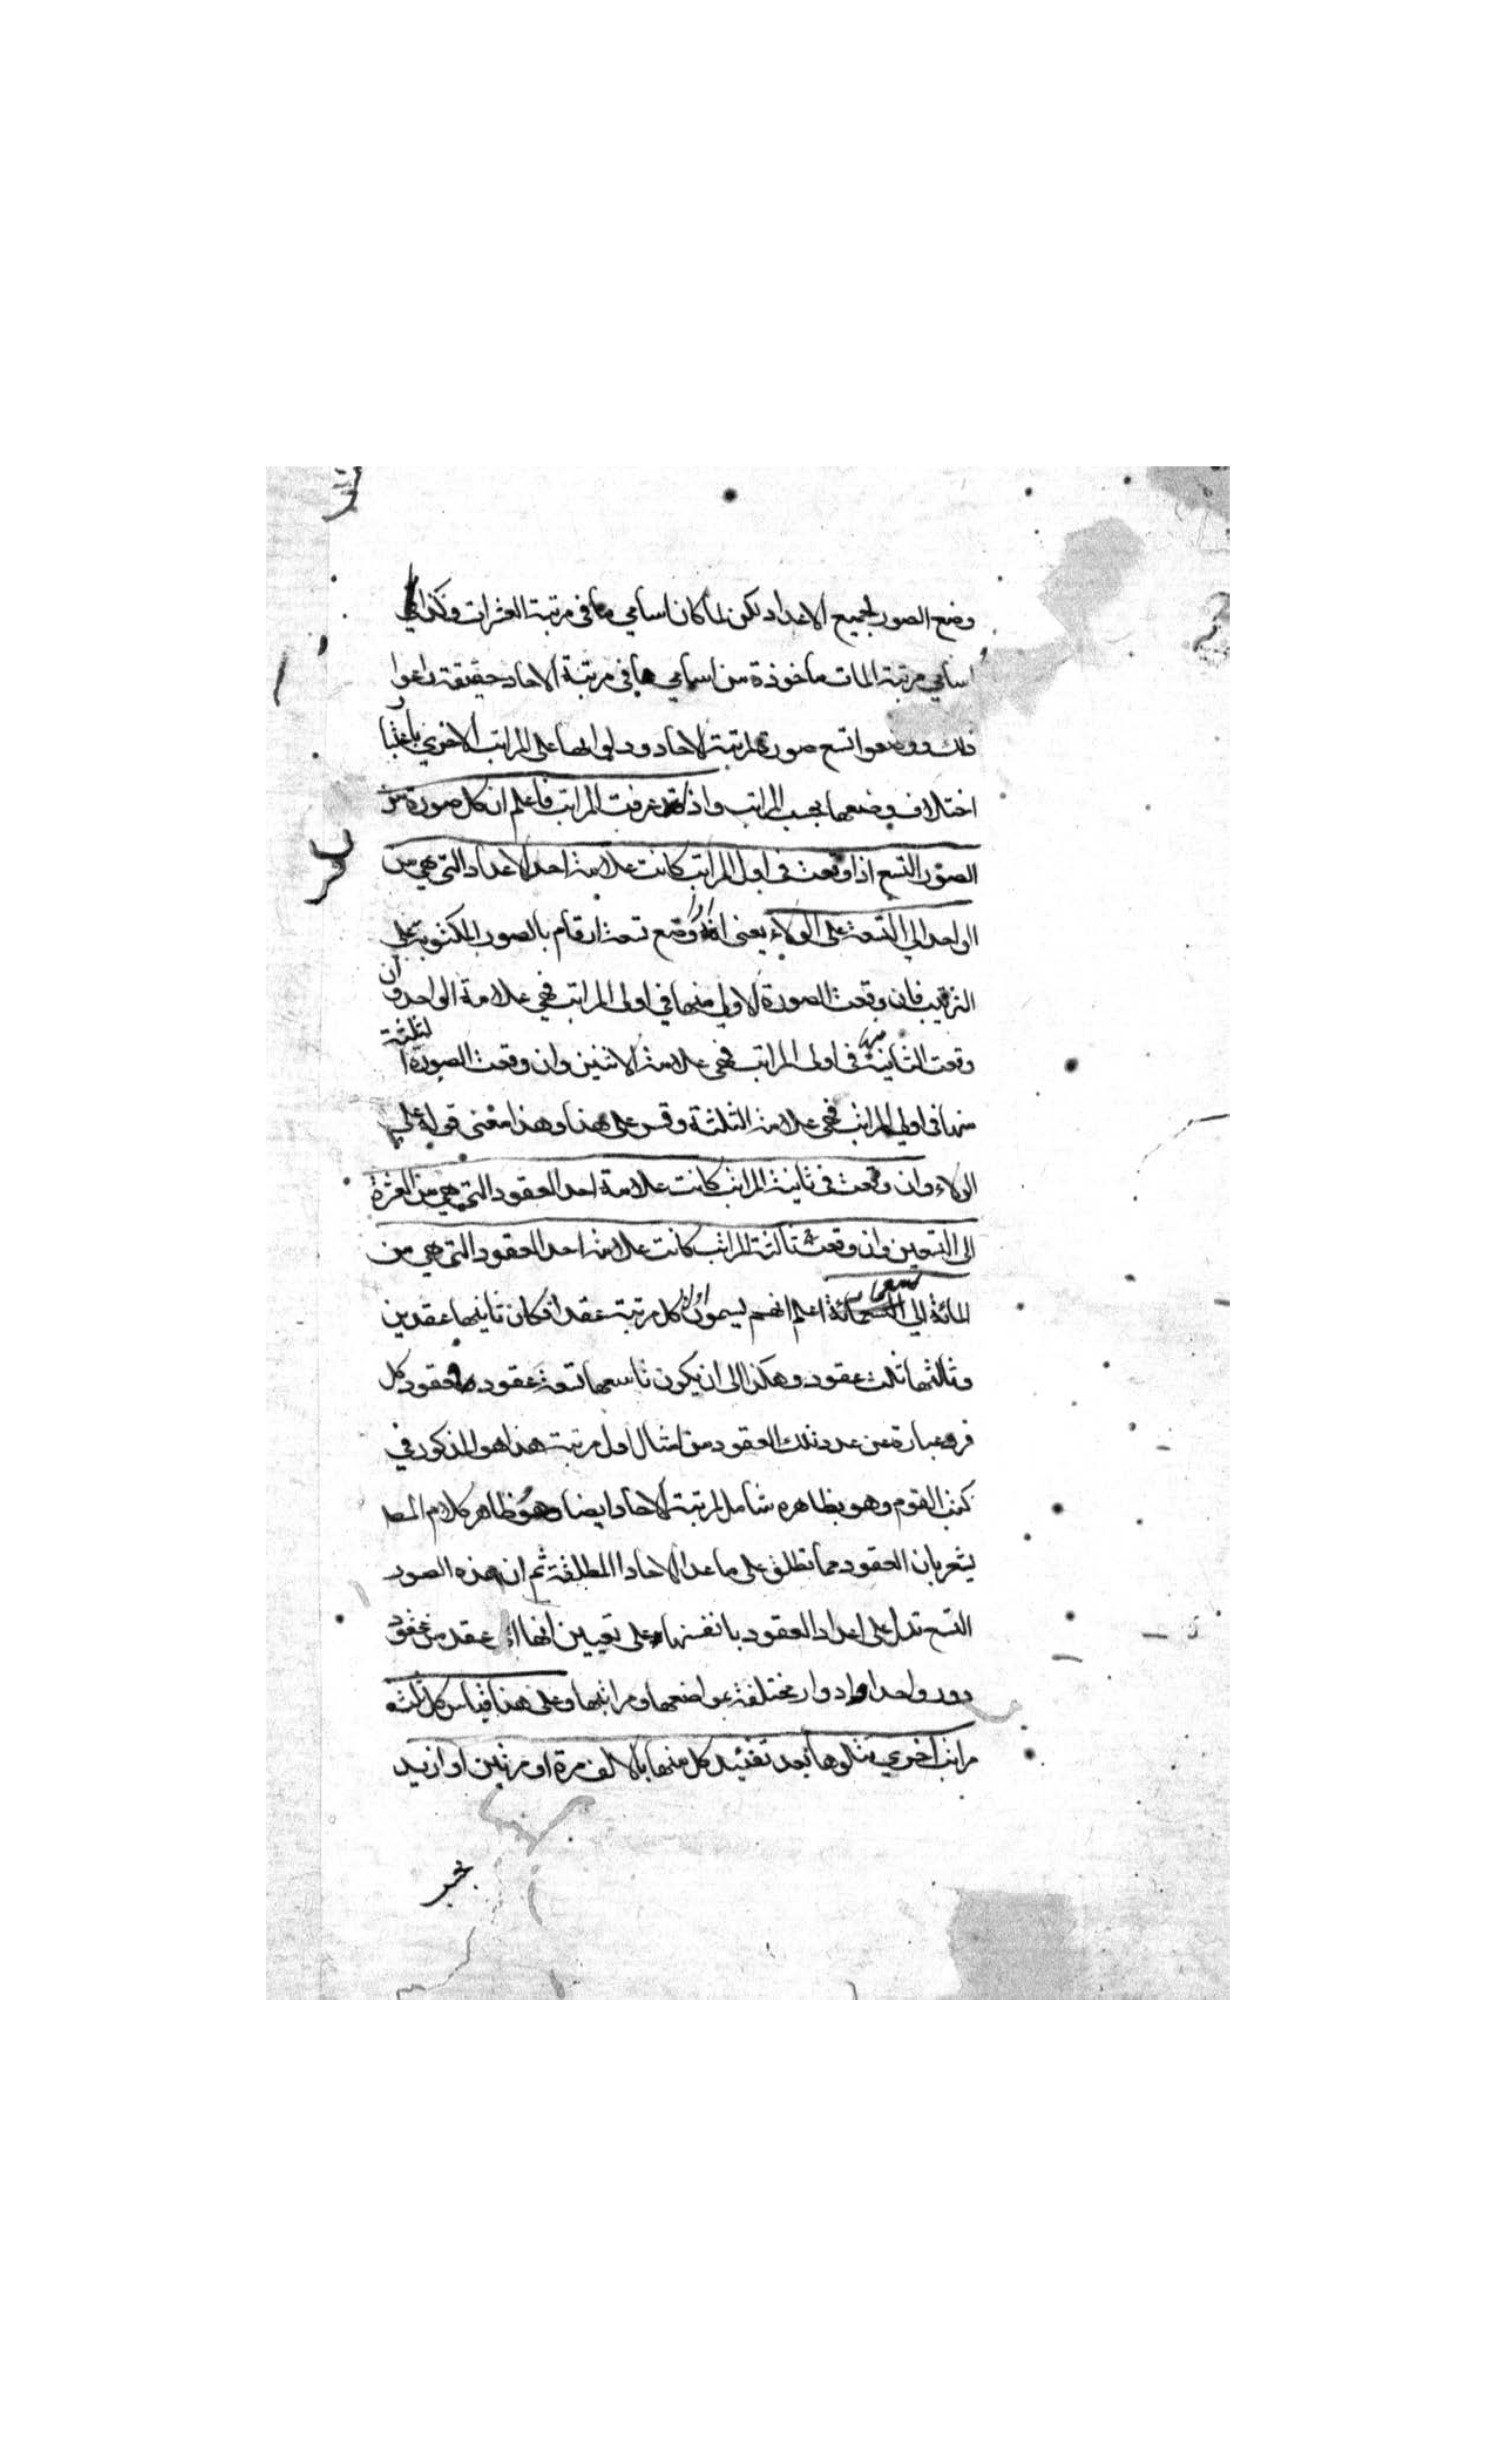 وضع الصور لجميع الاعداد لكن لما كان اسامي ما في مرتبة العشرات وكذا في
اسامي مرتبة المات ماخوذة من اسامي ما في مرتبة الاحاد حقيقة راعوا
ذلك ووضعوا تسع صور لمرتبة الاحاد ودلوا بها على المراتب الاخري باعتبا
اختلاف وضعها بحسب المراتب واذا قد عرفت المراتب فاعلم ان كل صورة من
الصور التسع اذا وقعت في اول المراتب كانت علامة احد الاعداد التي هي من
الواحد الي التسعة على الولاء يعني وضع تسعة ارقام بالصور المكتوبة على
الترتيب فان وقعت الصورة الاولي منها في اولى المراتب فهي علامة الواحد وان
وقعت الثانية منها في اولى المراتب فهي علامة الاثنين وان وقعت الصورة الثلثة
منها في اولي المراتب فهي علامة الثلثة وقس على هذا وهذا معنى قوله على
الولاء وان وقعت في ثانية المراتب كانت علامة احد العقود التي هي من العشرة
الى التسعين وان وقعت في ثالثة المراتب كانت علامة احد العقود التي هي من
المائة الي التسعمائة اعلم انهم يسمون اول كل مرتبة عقدا فكان ثانيها عقدين
وثالثها ثلث عقود وهكذا الى ان يكون تاسعها تسعة عقود فعقود كل
فرد عبارة عن عدد تلك العقود من امثال اول مرتبة هذا هو المذكور في
كتب القوم وهو بظاهره شامل لمرتبة الاحاد ايضا وظاهر كلام المصـ
يشعر بان العقود مما تطلق على ما عدا الاحاد المطلقة ثم ان هذه الصور
التسع تدل على اعداد العقود بانفسها وعلى تعيين انها اي عقد من عقود
دور واحد او ادوار مختلفة بمواضعها ومراتبها وعلى هذا قياس كل ثلثة
مراتب اخري يتلوها بعد تقييد كل منها بالالف مرة او مرتين او ازيد